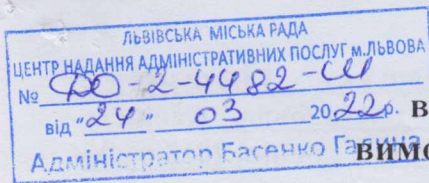 ЛЬВІВСЬКА МІСЬКА РАДА
ЦЕНТР НАДАННЯ АДМІНІСТРАТИВНИХ ПОСЛУГ м.ЛЬВОВА
№ ДО-2-4482-Ш
від "24" 03 2022р. В
Адміністратор Басенко Галина ВИМО